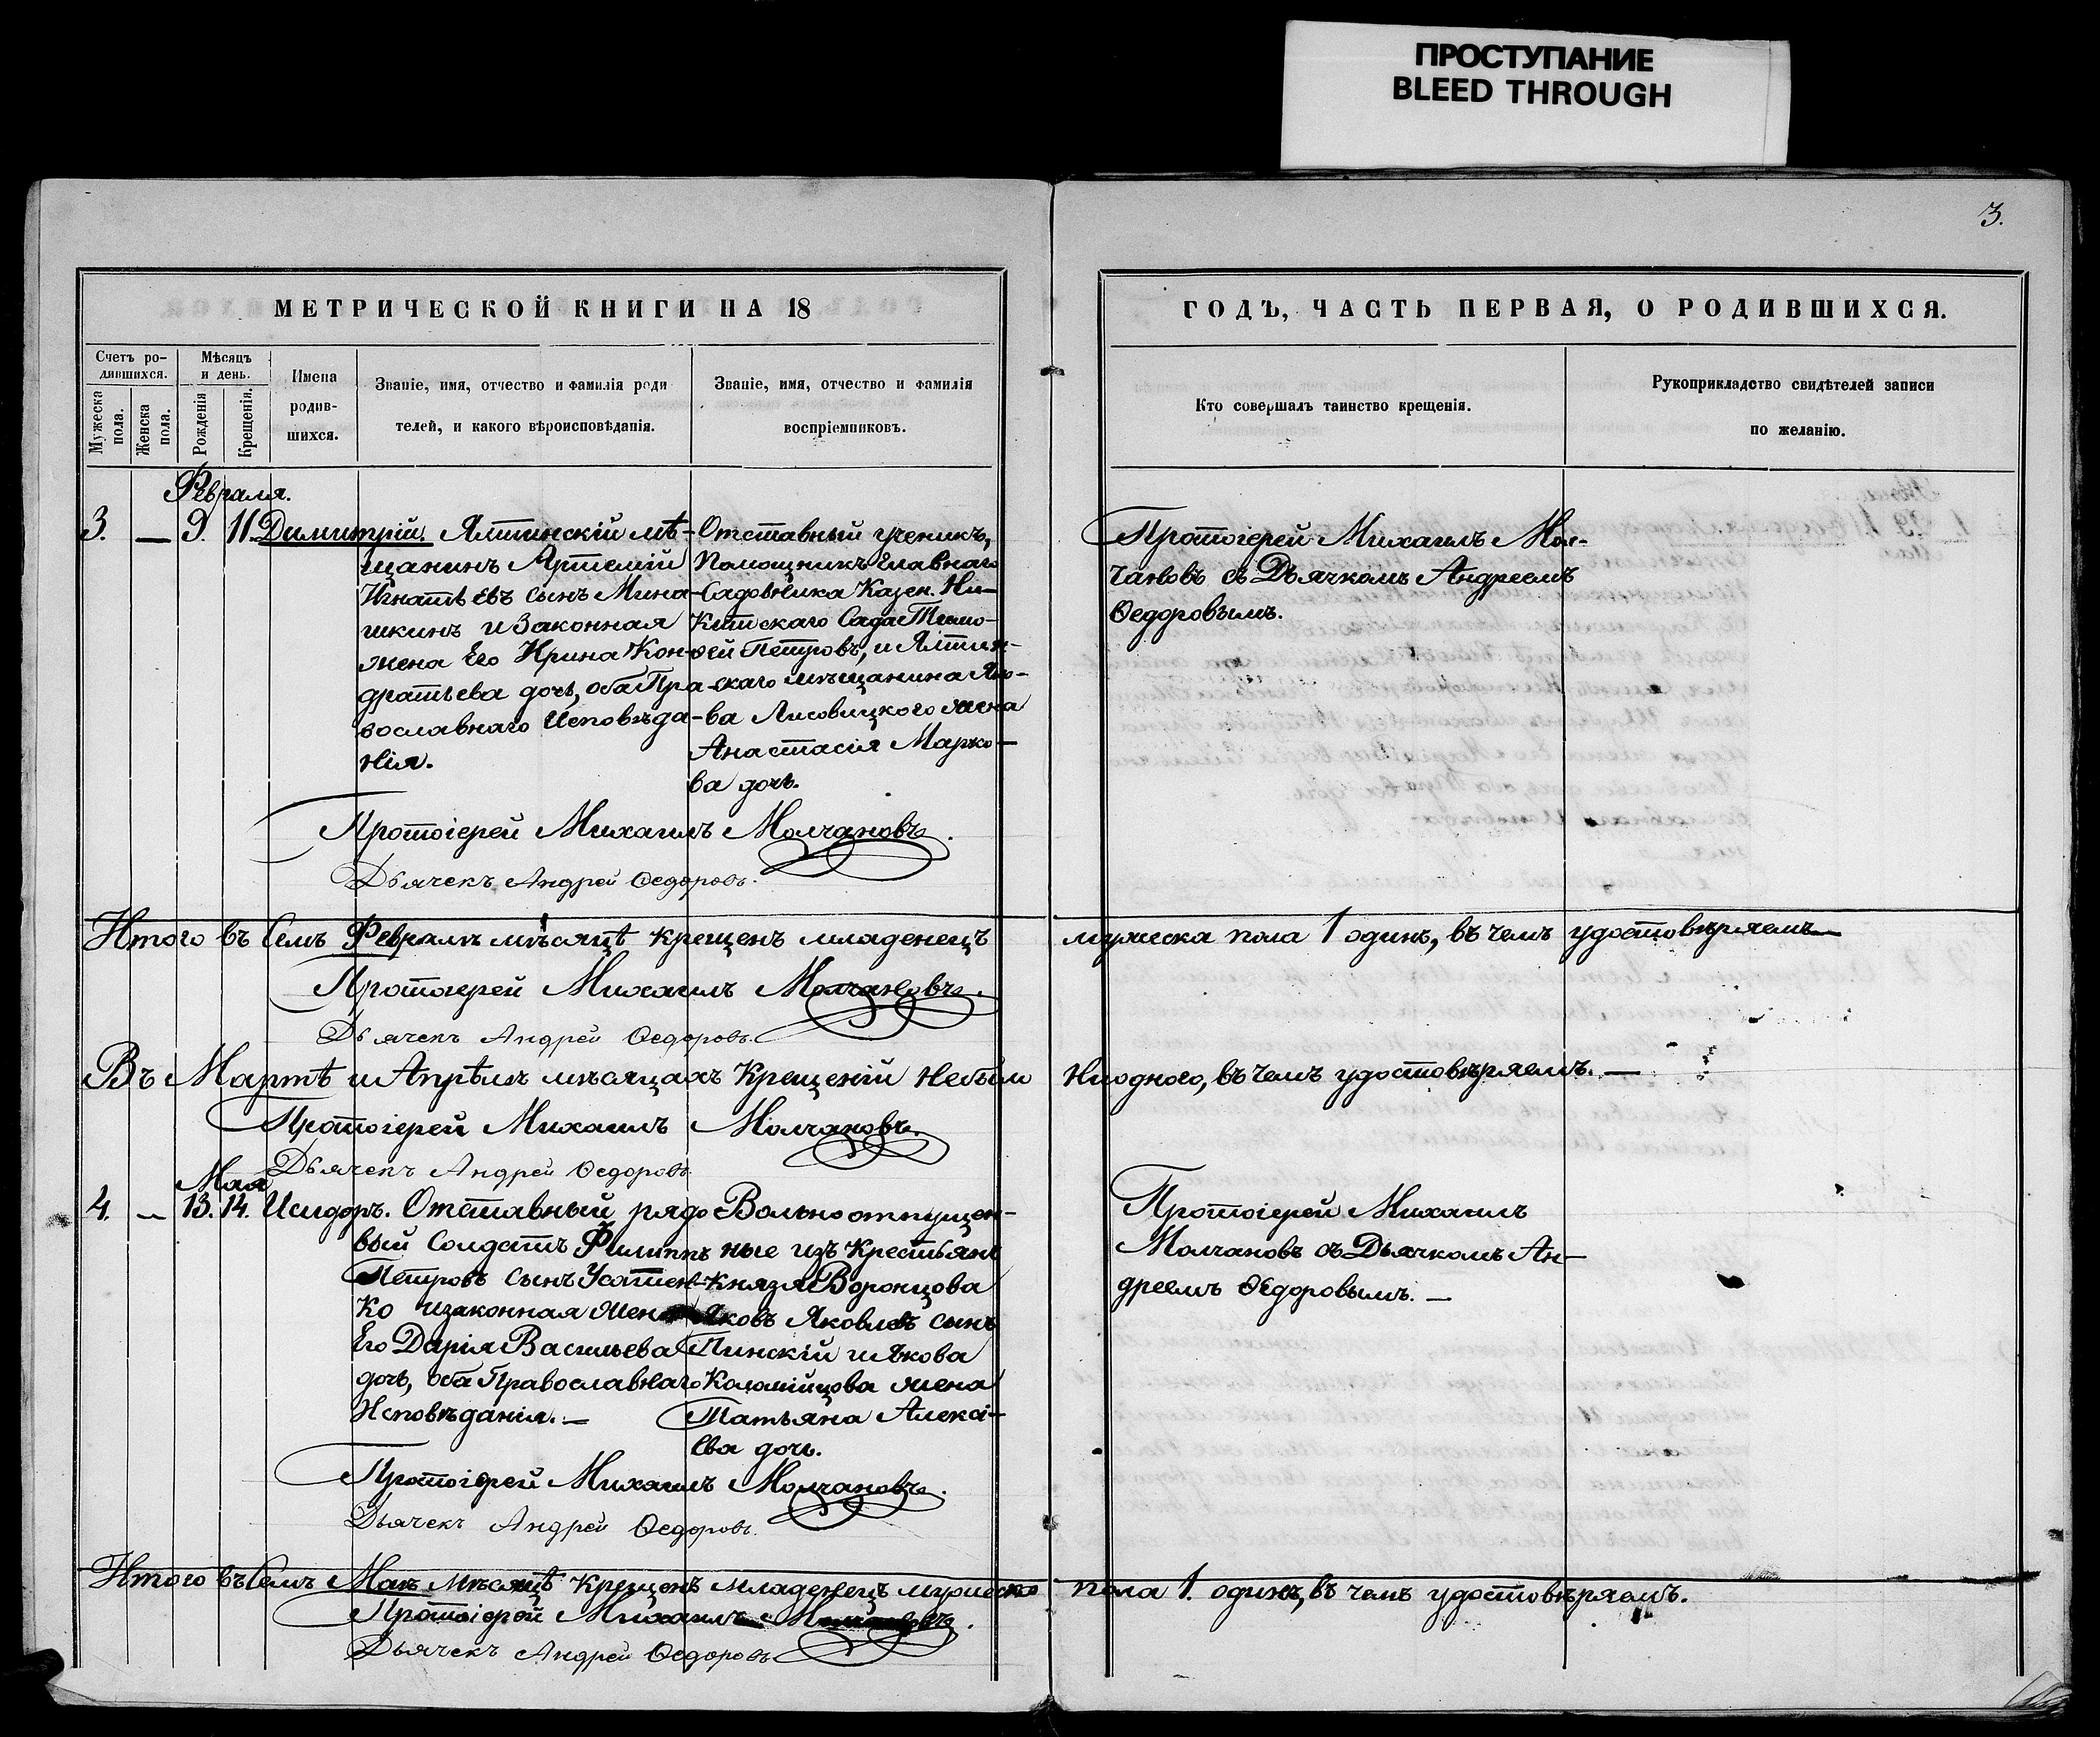 ПРОСТУПАНИЕ
BLEED THROUGH
3.
МЕТРИЧЕСКОЙ КНИГИ НА 18
Счетъ ро-
дившихся.
Мужеска пола.
Женска пола.
Мѣсяцъ
и день.
Рожденія
Крещенія.
Имена
родив-
шихся.
Званіе, имя, отчество и фамилія роди
телей, и какого вѣроисповѣданія.
Званіе, имя, отчество и фамилія
воспріемниковъ.
ГОДЪ, ЧАСТЬ ПЕРВАЯ, О РОДИВШИХСЯ.
Кто совершалъ таинство крещенія.
Рукоприкладство свидѣтелей записи
по желанію.
Февраля.
3. — 9. 11 Димитрій.
Ялтинскій мѣ-
щанинъ Артемій
Игнатьевъ сынъ Мина-
шкинъ и Законная
жена Его Ирина Кон-
дратьева дочь, оба Пра-
вославнаго Исповѣда-
нія.
Отставный ученикъ,
Помощникъ Главнаго
Садовника Казен. Ни-
китскаго Сада Тимо-
ѳей Петровъ, и Ялтин-
скаго мѣщанина Яко-
ва Лисовицкого жена
Анастасія Марко-
ва дочь.
Протоіерей Михаилъ Мол-
чановъ съ Дьячкомъ Андреемъ
Ѳедоровымъ.
Протоіерей Михаилъ Молчановъ.
Дьячекъ Андрей Ѳедоровъ.
Итого въ Семъ Февралѣ мѣсяцѣ крещенъ младенецъ мужеска пола 1 одинъ, въ чемъ удостовѣряемъ —
Протоіерей Михаилъ Молчановъ.
Дьячекъ Андрей Ѳедоровъ.
Въ Мартѣ и Апрѣлѣ мѣсяцахъ Крещеній небыло ниодного, въ чемъ удостовѣряемъ. —
Протоіерей Михаилъ Молчановъ.
Дьячекъ Андрей Ѳедоровъ.
Мая
4. — 13. 14. Исидоръ.
Отставный рядо
вый Солдатъ Филиппъ
Петровъ сынъ Усатен-
ко и законная жена
Его Дарія Васильева
дочь, оба Православнаго
Исповѣданія. —
Вольноотпущен-
ные изъ Крестьянъ
Князя Воронцова
Яковъ Яковлевъ сынъ
Пинскій и Якова
Коломійцова жена
Татьяна Алексѣ-
ева дочь.
Протоіерей Михаилъ
Молчановъ съ Дьячкомъ Ан-
дреемъ Ѳедоровымъ. —
Протоіерей Михаилъ Молчановъ.
Дьячекъ Андрей Ѳедоровъ.
Итого въ Семъ Маѣ мѣсяцѣ крещенъ младенецъ мужеска пола 1. одинъ, въ чемъ удостовѣряемъ.
Протоіерей Михаилъ Молчановъ.
Дьячекъ Андрей Ѳедоровъ